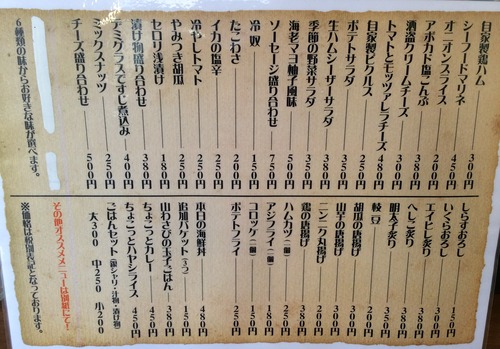 自家製鶏ハム 300円
シーフードマリネ 450円
オニオンスライス 200円
アボカド塩こんぶ 300円
酒盗クリームチーズ 380円
トマトとモッツァレラチーズ 480円
自家製ピクルス 350円
ポテトサラダ 250円
生ハムシーザーサラダ 380円
季節の野菜サラダ 350円
海老マヨ柚子風味 500円
ソーセージ盛り合わせ 750円
冷奴 150円
たこわさ 200円
イカの塩辛 250円
冷やしトマト 250円
やみつき胡瓜 250円
セロリ浅漬け 180円
漬け物盛り合わせ 380円
デミグラスですじ煮込み 400円
ミックスナッツ 250円
チーズ盛り合わせ 500円
6種類の味からお好きな味が選べます。
しらすおろし 150円
いくらおろし 300円
エイヒレ炙り 300円
へしこ炙り 380円
明太子炙り 350円
枝豆 200円
胡瓜の唐揚げ
山芋の唐揚げ 300円
ニンニク丸揚げ
鶏の唐揚げ 380円
ハムカツ(一個) 250円
アジフライ(一個) 180円
コロッケ(一個) 150円
ポテトフライ 250円
本日の海鮮丼 480円
追加バケット(3つ) 150円
山わさびの玉子ごはん 380円
ちょこっとカレー 450円
ちょこっとハヤシライス 450円
ごはんセット(銀シャリ・汁物・漬け物)
大300 中250 小200
その他オススメメニューは別紙にて!
※価格は税別表記となっております。